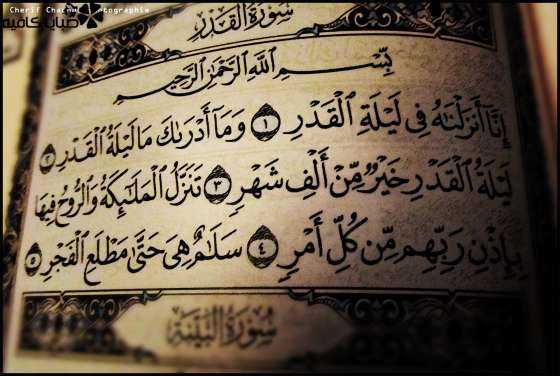 Cherif
صبايا كافيه
سُورَةُ القَدْرِ
بِسْمِ اللَّهِ الرَّحْمَٰنِ الرَّحِيمِ
إِنَّا أَنزَلْنَٰهُ فِي لَيْلَةِ الْقَدْرِ ١ وَمَا أَدْرَىٰكَ مَا لَيْلَةُ الْقَدْرِ ٢
لَيْلَةُ الْقَدْرِ خَيْرٌ مِّنْ أَلْفِ شَهْرٍ ٣ تَنَزَّلُ الْمَلَٰٓئِكَةُ وَالرُّوحُ فِيهَا
بِإِذْنِ رَبِّهِم مِّن كُلِّ أَمْرٍ ٤ سَلَٰمٌ هِيَ حَتَّىٰ مَطْلَعِ الْفَجْرِ ٥
سُورَةُ البَيِّنَةِ